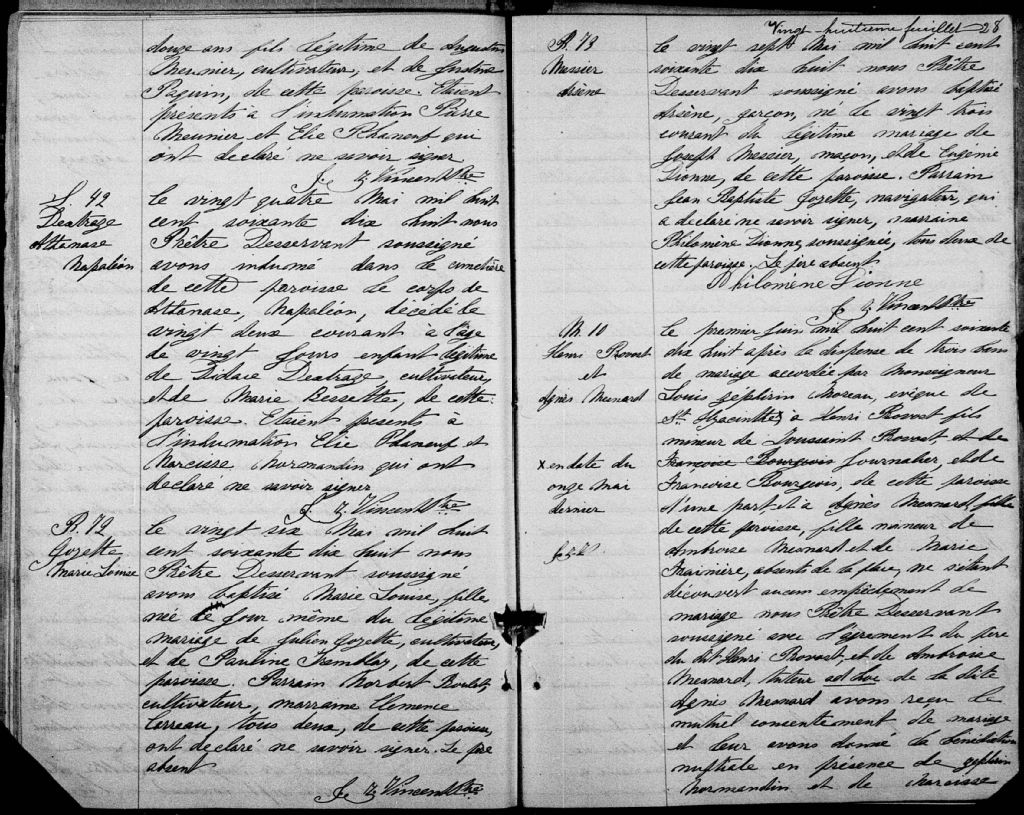 douze ans fils légitime de Augustin
Meunier, cultivateur, et de Justine
Paquin, de cette paroisse. Etaient
présents à l'inhumation Pierre
Meunier et Elie Phaneuf qui
ont declaré ne savoir signer
J. Z. Vincent Ptre
S. 42
Dextraze
Athanase
Napoléon
Le vingt quatre Mai mil huit
cent soixante dix huit nous
Prêtre Desservant soussigné
avons inhumé dans le cimetière
de cette paroisse le corps de
Athanase, Napoléon, décédé le
vingt deux courant à l'age
de vingt jours enfant légitime
de Didace Dextraze, cultivateur,
et de Marie Bessette, de cette
paroisse. Etaient présents à
l'inhumation Elie Phaneuf et
Narcisse Normandin qui ont
declaré ne savoir signer
J. Z. Vincent Ptre
B. 72
Gozette
Marie Louise
Le vingt six Mai mil huit
cent soixante dix huit nous
Prêtre Desservant soussigné
avons baptisé Marie Louise, fille
née le jour même du légitime
mariage de Julien Gozette, cultivateur,
et de Pauline Tremblay, de cette
paroisse. Parrain Norbert Boulet,
cultivateur, marraine Clemence
Carreau, tous deux, de cette paroisse,
ont declaré ne savoir signer. Le père
absent
J. Z. Vincent Ptre
Vingt-huitième feuillet 28
B. 73
Messier
Arsène
Le vingt sept Mai mil huit cent
soixante dix huit nous Prêtre
Desservant soussigné avons baptisé
Arsène, garçon, né le vingt trois
courant du légitime mariage de
Joseph Messier, maçon, et de Eugénie
Dionne, de cette paroisse. Parrain
Jean Baptiste Gozette, navigateur, qui
a declaré ne savoir signer, marraine
Philomène Dionne, soussignée, tous deux de
cette paroisse. Le père absent
Philomène Dionne
J. Z. Vincent Ptre
M. 10
Henri Provost
et
Agnès Menard
Le premier Juin mil huit cent soixante
dix huit après la dispense de trois bans
de mariage accordée par Monseigneur
Louis Zéphirin Moreau, evêque de
St. Hyacinthe x à Henri Provost fils
mineur de Toussaint Provost et de
Françoise Bourgeois journalier, et de
Françoise Bourgeois, de cette paroisse
d'une part et à Agnès Mesnard, fille
de cette paroisse, fille mineure de
Ambroise Mesnard et de Marie
absents de la place, ne s'étant
découvert aucun empêchement de
mariage nous Prêtre Desservant
soussigné avec l'agrement du père
du dit Henri Provost, et de Ambroise
Mesnard, tuteur ad hoc de la dite
Agnès Mesnard avons reçu le
mutuel consentement de mariage
et leur avons donné la bénédiction
nuptiale en présence de Zéphirin
Normandin et de Narcisse
x en date du
onze mai
dernier